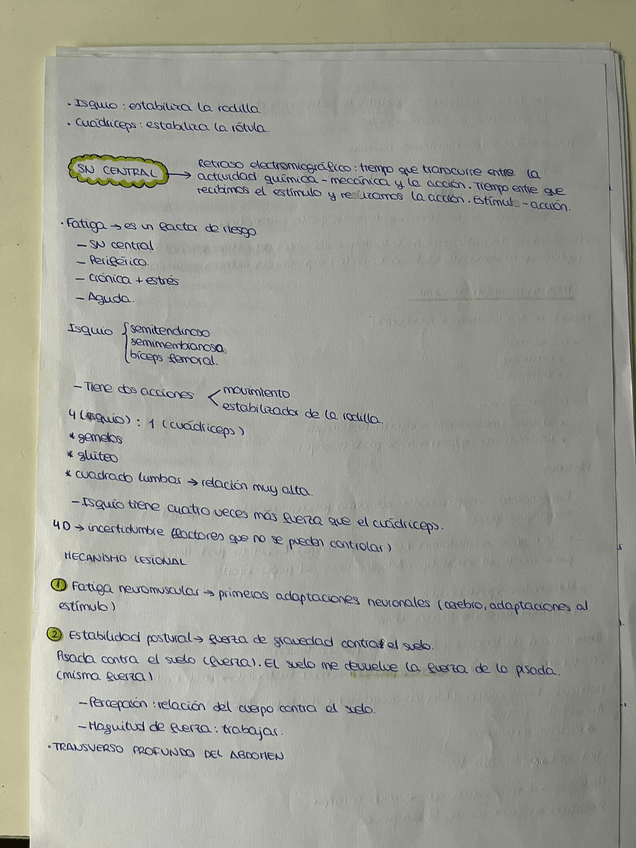 · Isquio: estabiliza la rodilla
· Cuádriceps: estabiliza la rótula.
SN CENTRAL → Retraso electromiográfico: tiempo que transcurre entre la
actividad química-mecánica y la acción. Tiempo entre que
recibimos el estímulo y realizamos la acción. Estímulo-acción.
· Fatiga → es un factor de riesgo
- SN central
- Periférico.
- Crónica + estrés
- Aguda.
Isquio { semitendinoso
semimembranosa
bíceps femoral.
- Tiene dos acciones < movimiento
estabilizador de la rodilla.
4 (isquio) : 1 (cuádriceps)
* gemelos
* glúteo
* cuadrado lumbar → relación muy alta.
- Isquio tiene cuatro veces más fuerza que el cuádriceps.
4D → incertidumbre (factores que no se pueden controlar)
MECANISMO LESIONAL
① Fatiga neuromuscular → primeras adaptaciones neuronales (cerebro, adaptaciones al
estímulo)
② Estabilidad postural → fuerza de gravedad contra el suelo.
Pisada contra el suelo (fuerza). El suelo me devuelve la fuerza de la pisada.
(misma fuerza)
- Percepción: relación del cuerpo contra el suelo.
- Magnitud de fuerza: trabajar.
· TRANSVERSO PROFUNDO DEL ABDOMEN